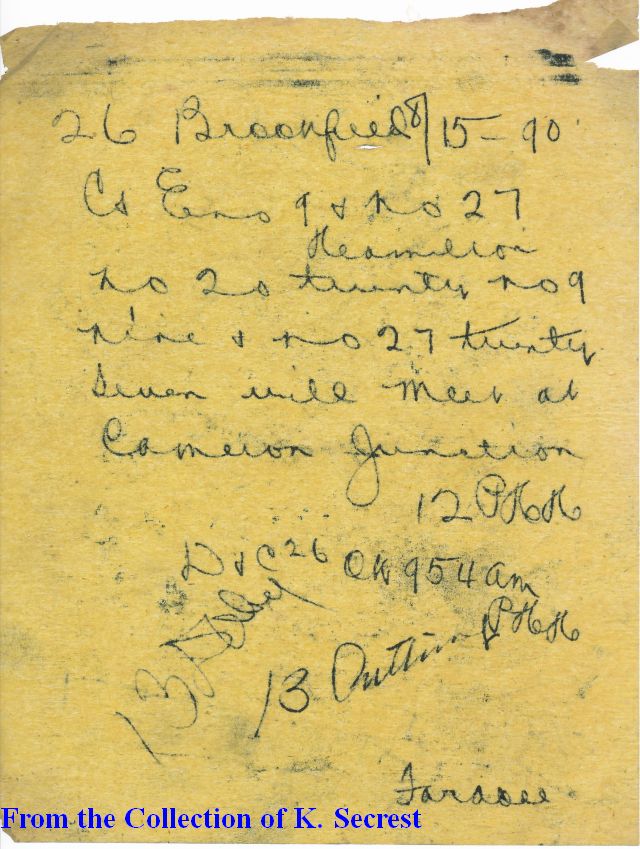 26 Brookfield 8/15-90
Cs Eno 9 & no 27
Hamilton
no 20 twenty no 9
nine & no 27 twenty
Seven will Meet at
Cameron Junction
12 PHH
D & C 26 OK 954 am
13 PHH
13
From the Collection of K. Secrest